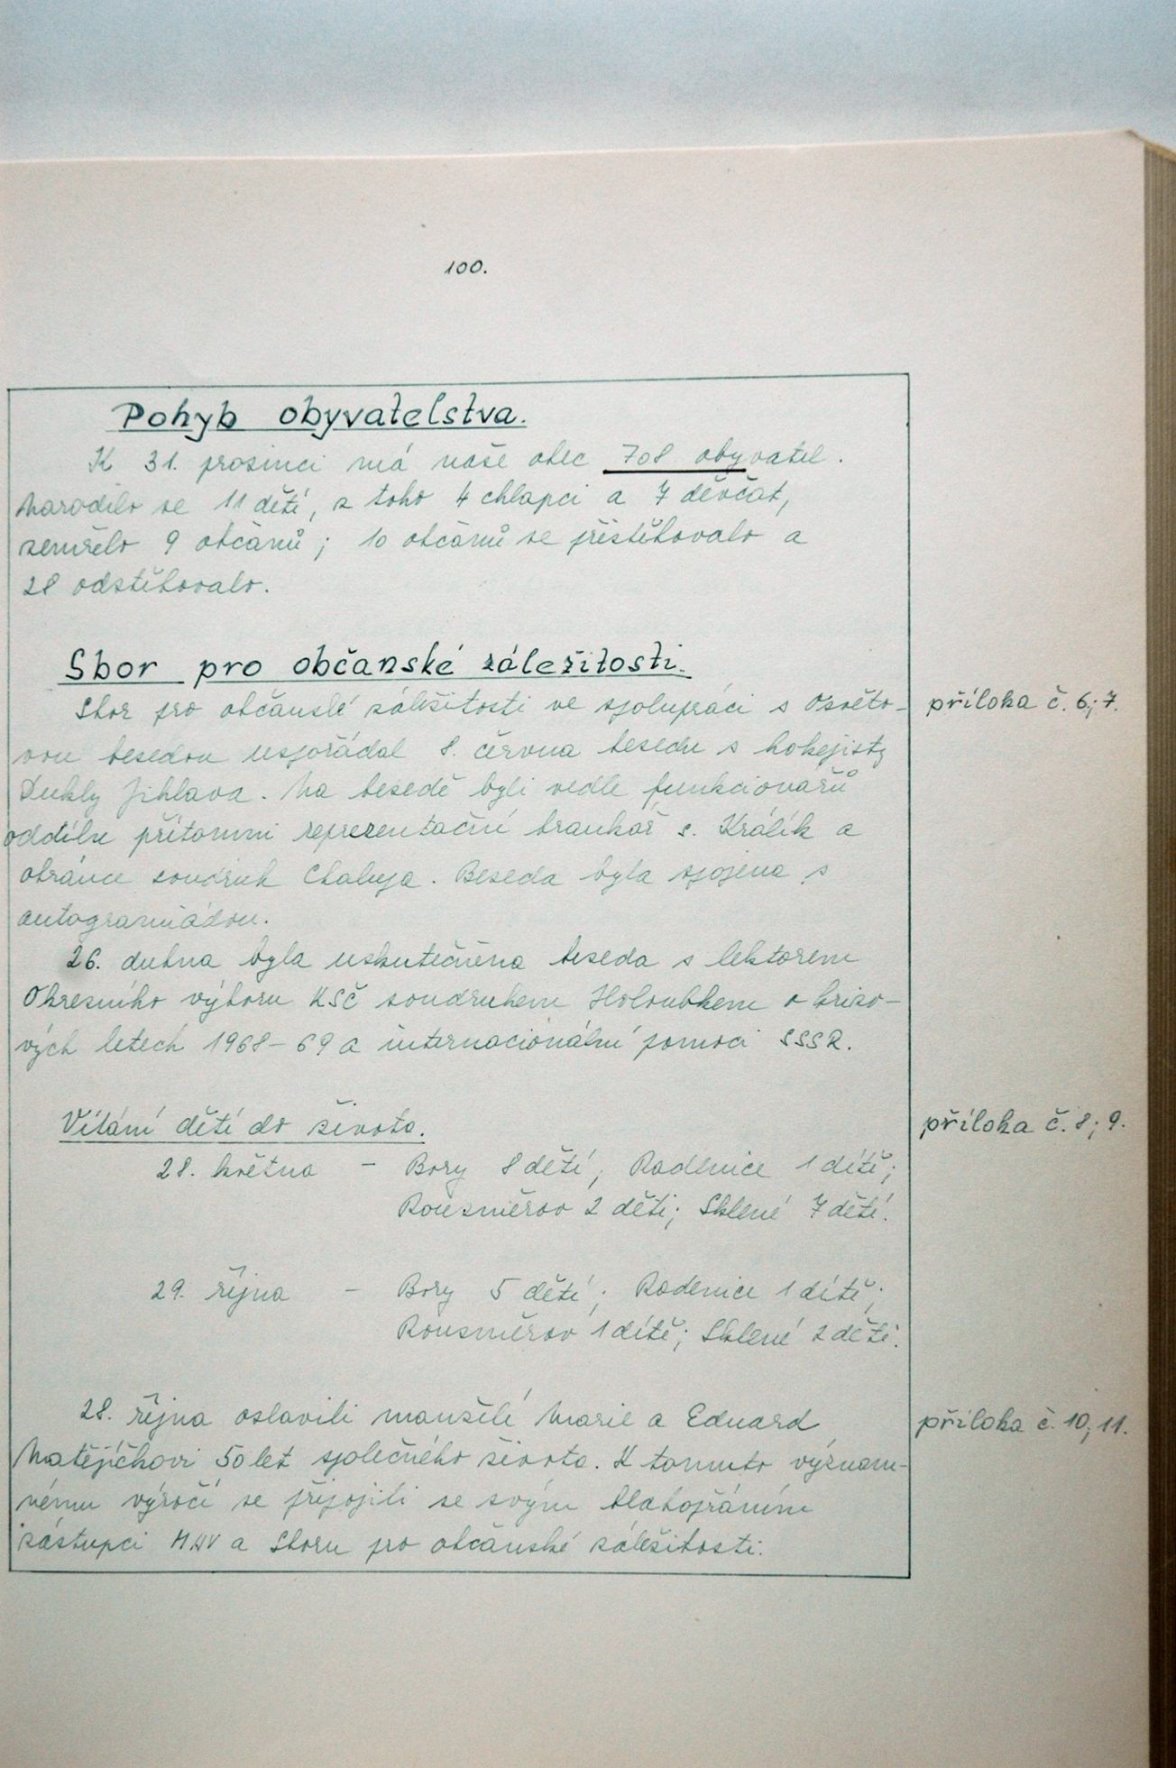 100.
Pohyb obyvatelstva.
K 31. prosinci má naše obec 708 obyvatel.
Narodilo se 11 dětí, z toho 4 chlapci a 7 děvčat,
zemřelo 9 občanů; 10 občanů se přistěhovalo a
28 odstěhovalo.
Sbor pro občanské záležitosti.
Sbor pro občanské záležitosti ve spolupráci s Osvěto-
příloha č. 6; 7.
vou besedou uspořádal 8. června besedu s hokejisty
Dukly Jihlava. Na besedě byli vedle funkcionářů
oddílu přítomni reprezentační brankář s. Králík a
obránce soudruh Chalupa. Beseda byla spojena s
autogramiádou.
26. dubna byla uskutečněna beseda s lektorem
Okresního výboru KSČ soudruhem Holoubkem o krizo-
vých letech 1968-69 a internacionální pomoci SSSR.
Vítání dětí do života.
příloha č. 8; 9.
28. května - Bory 8 dětí; Radenice 1 dítě;
Rousměrov 2 děti; Sklené 7 dětí.
29. října - Bory 5 dětí; Radenice 1 dítě;
Rousměrov 1 dítě; Sklené 2 děti.
28. října oslavili manželé Marie a Eduard
příloha č. 10; 11.
Matějíčkovi 50 let společného života. K tomuto význam-
nému výročí se připojili se svým blahopřáním
zástupci MNV a Sboru pro občanské záležitosti.